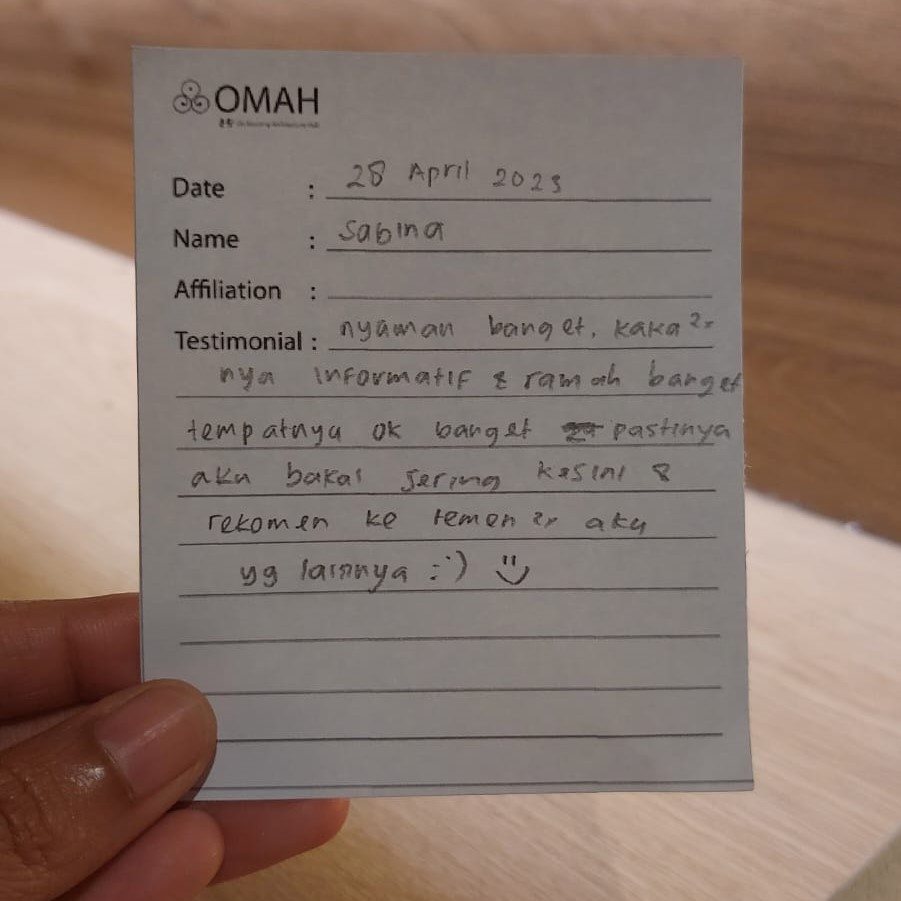 OMAH
Date : 28 April 2023
Name : Sabina
Affiliation :
Testimonial : nyaman banget. kaka²-
nya informatif & ramah banget
tempatnya ok banget pastinya
aku bakal sering kesini &
rekomen ke temen 2x aku
yg lainnya :')